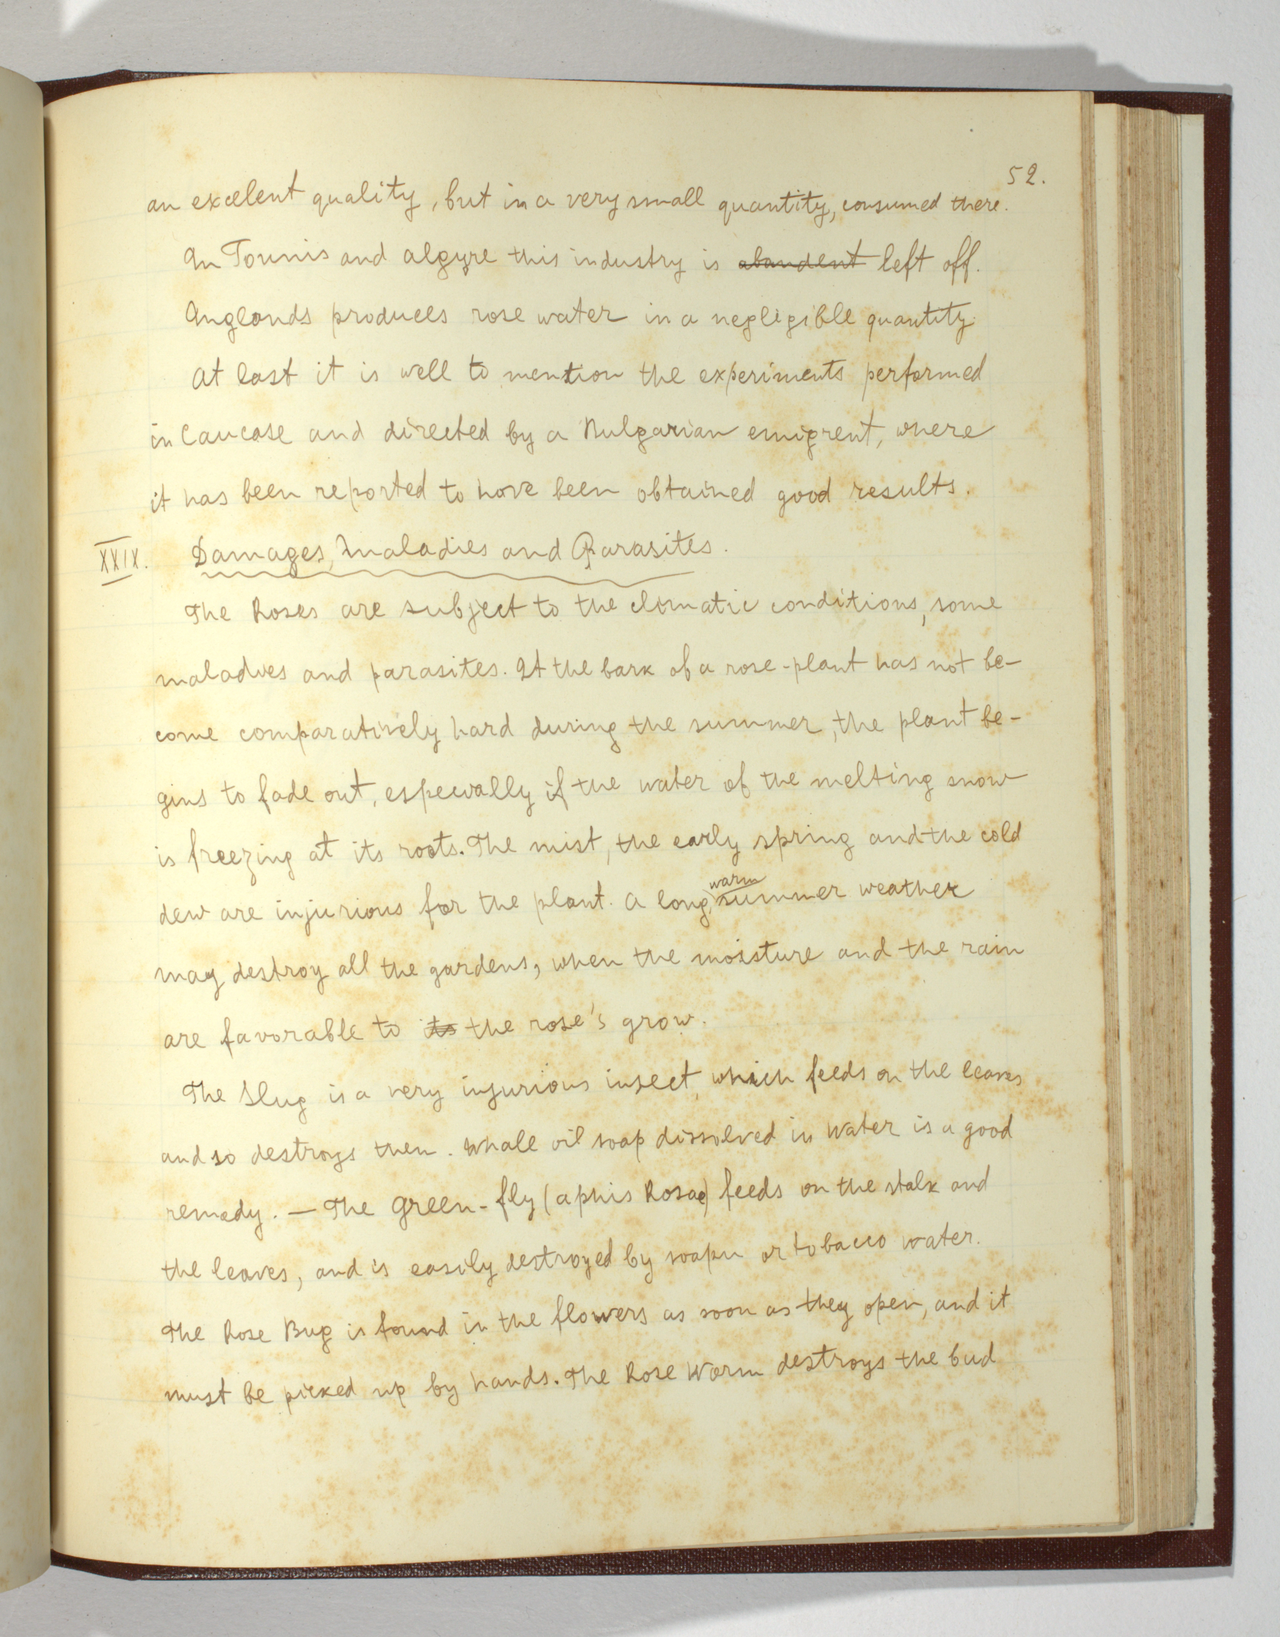 52.
an excelent quality, but in a very small quantity, consumed there.
In Tounis and algyre this industry is abandent left off.
Englands produces rose water in a negligible quantity.
At last it is well to mention the experiments performed
in Caucase and directed by a Bulgarian emigrent, where
it has been reported to have been obtained good results.
XXIX. Damages, maladies and Parasites.
The Roses are subject to the climatic conditions, some
maladies and parasites. If the bark of a rose-plant has not be-
come comparatively hard during the summer, the plant be-
gins to fade out, especially if the water of the melting snow
is freezing at its roots. The mist, the early spring and the cold
dew are injurious for the plant. A long warm summer weather
may destroy all the gardens, when the moisture and the rain
are favorable to its the rose's grow.
The Slug is a very injurious insect, which feeds on the leaves
and so destroys then. Whale oil soap dissolved in water is a good
remedy. — The green-fly (aphis Rosae) feeds on the stalk and
the leaves, and is easily destroyed by soapu or tobacco water.
The Rose Bug is found in the flowers as soon as they open, and it
must be picked up by hands. The Rose Worm destroys the bud